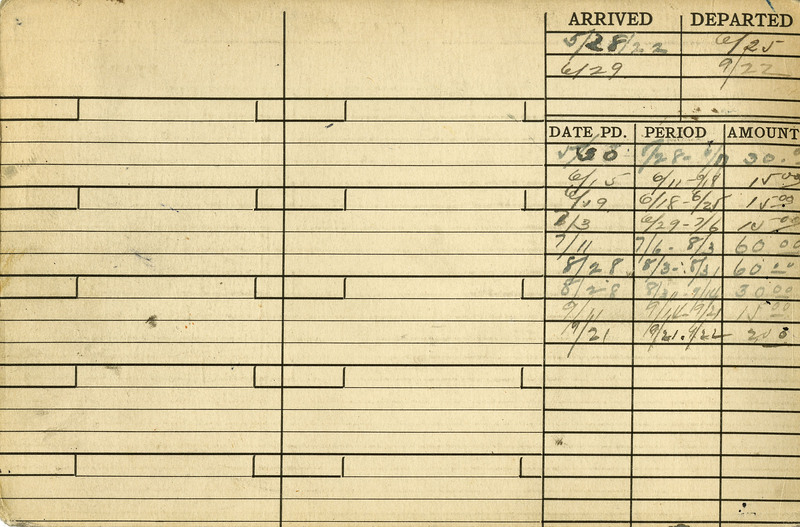 ARRIVED DEPARTED
5/28/22 6/25
6/29 9/22
DATE PD. PERIOD AMOUNT
5/30 5/28- 6/11 30.
6/15 6/11-6/18 15 00
6/19 6/18-6/25 15 00
7/3 6/29-7/6 15 00
7/11 7/6- 8/3 60 00
8/28 8/3- 8/31 60 00
8/28 8/31-9/14 30 00
9/11 9/14-9/21 15 00
9/21 9/21. 9/22